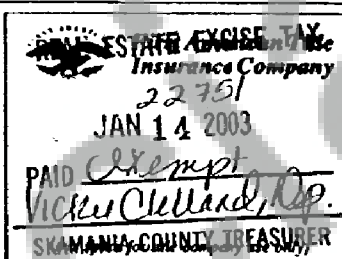 REAL ESTATE EXCISE TAX
Insurance Company
22751
JAN 14 2003
PAID Exempt
Vicki Clelland, Dep.
SKAMANIA COUNTY TREASURER